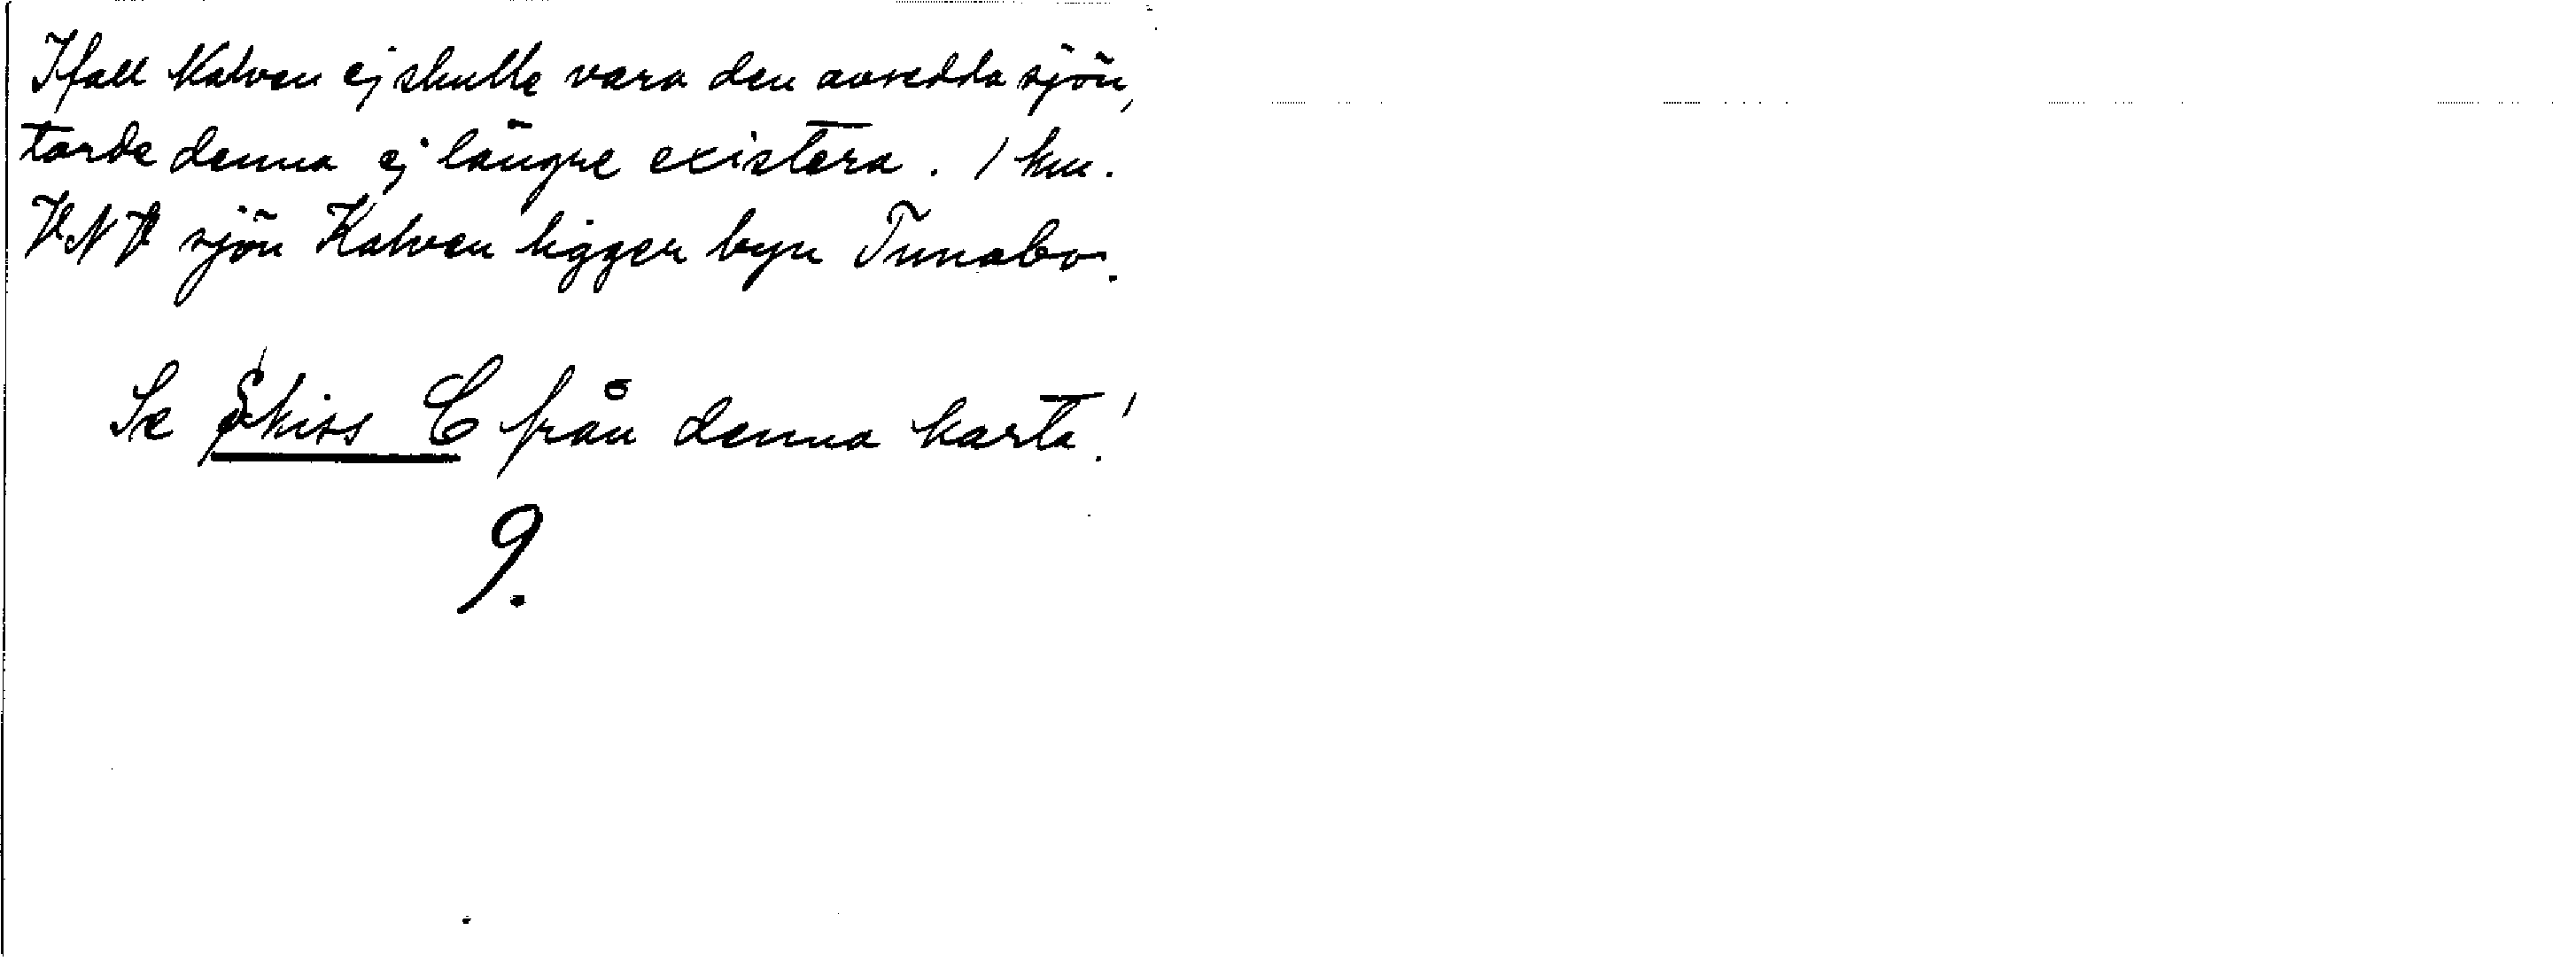 Ifall Kalven ej skulle vara den avsedda sjön,
torde denna ej längre existera. 1 km.
VNV sjön Kalven ligger byn Tunabo.
Se Skiss C från denna karta!
9.